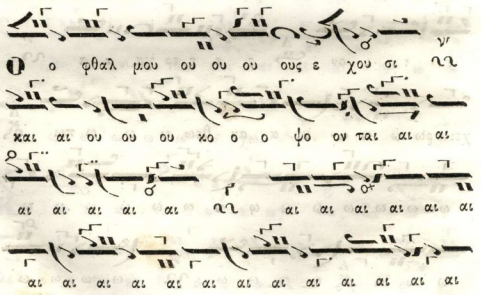 Ο ο φθαλ μου ου ου ου ους ε χου σι
και αι ου ου ου κο ο ο ψο ον ται αι αι
αι αι αι αι αι αι αι αι αι αι
αι αι αι αι αι αι αι αι αι αι αι